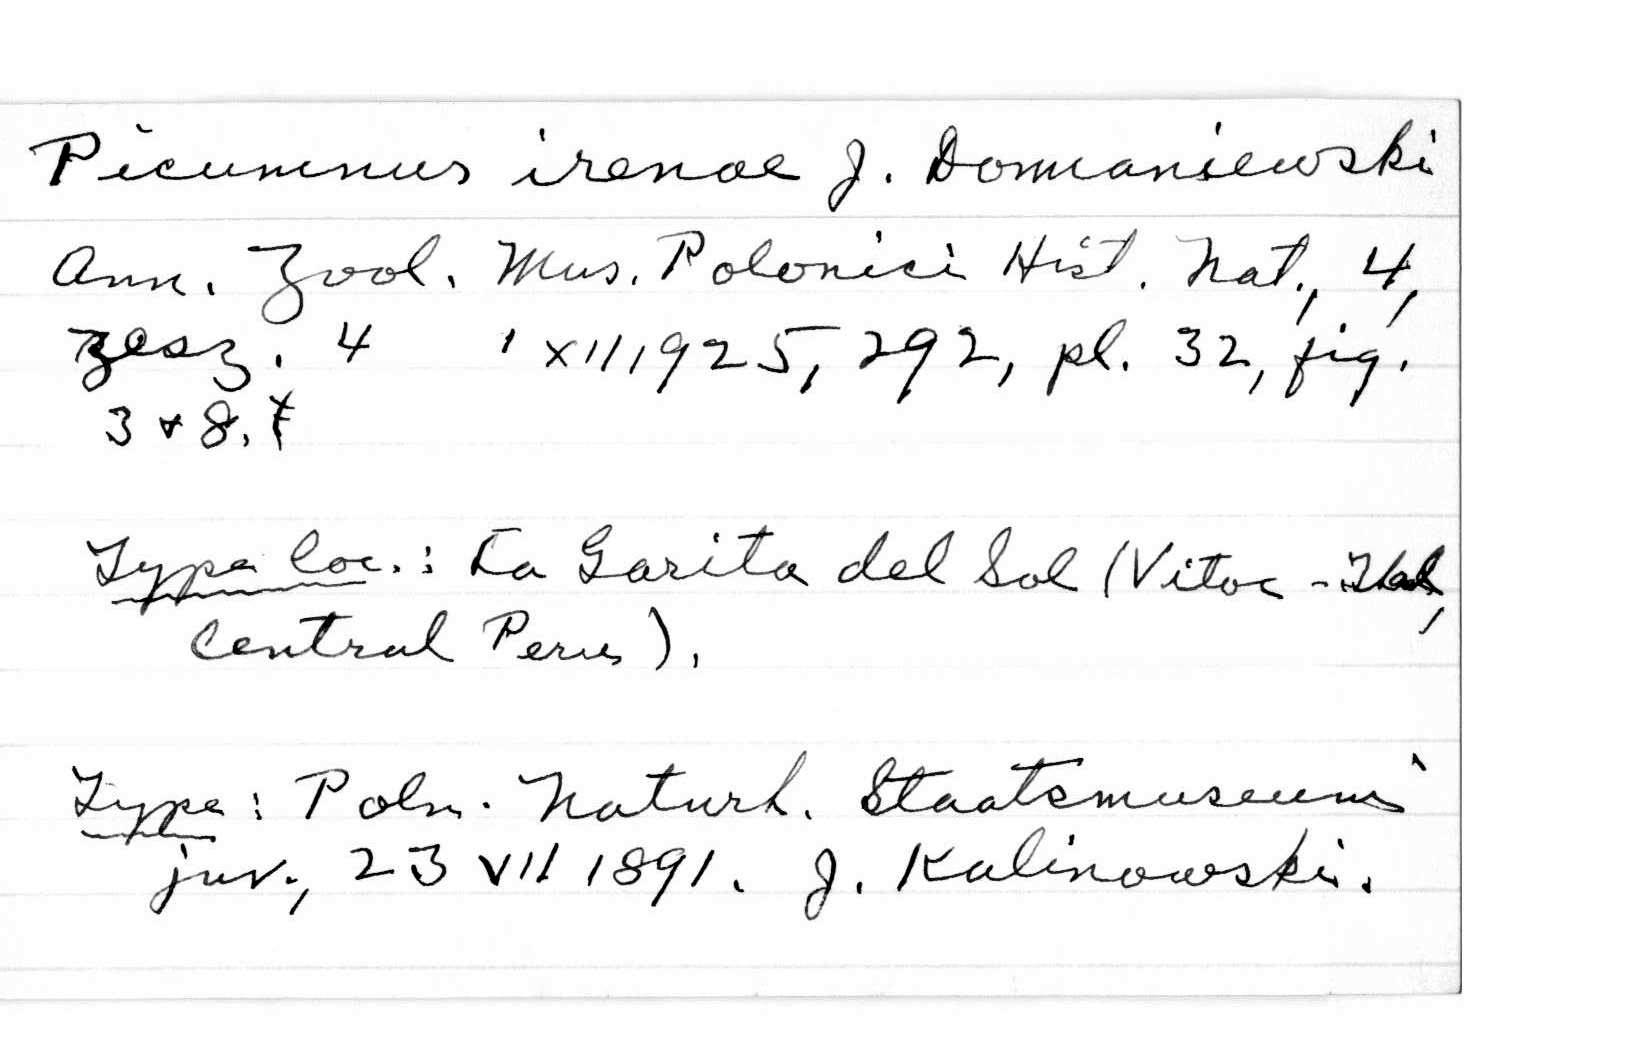 Picumnus irenae J. Domaniewski
Ann. Zool. Mus. Polonici Hist. Nat., 4,
zesz. 4 1 XII 1925, 292, pl. 32, fig.
3 + 8.
Type loc.: La Garita del Sol (Vitoc - Thal,
Central Peru).
Type: Poln. Naturh. Staatsmuseum
juv., 23 VII 1891. J. Kalinowski.